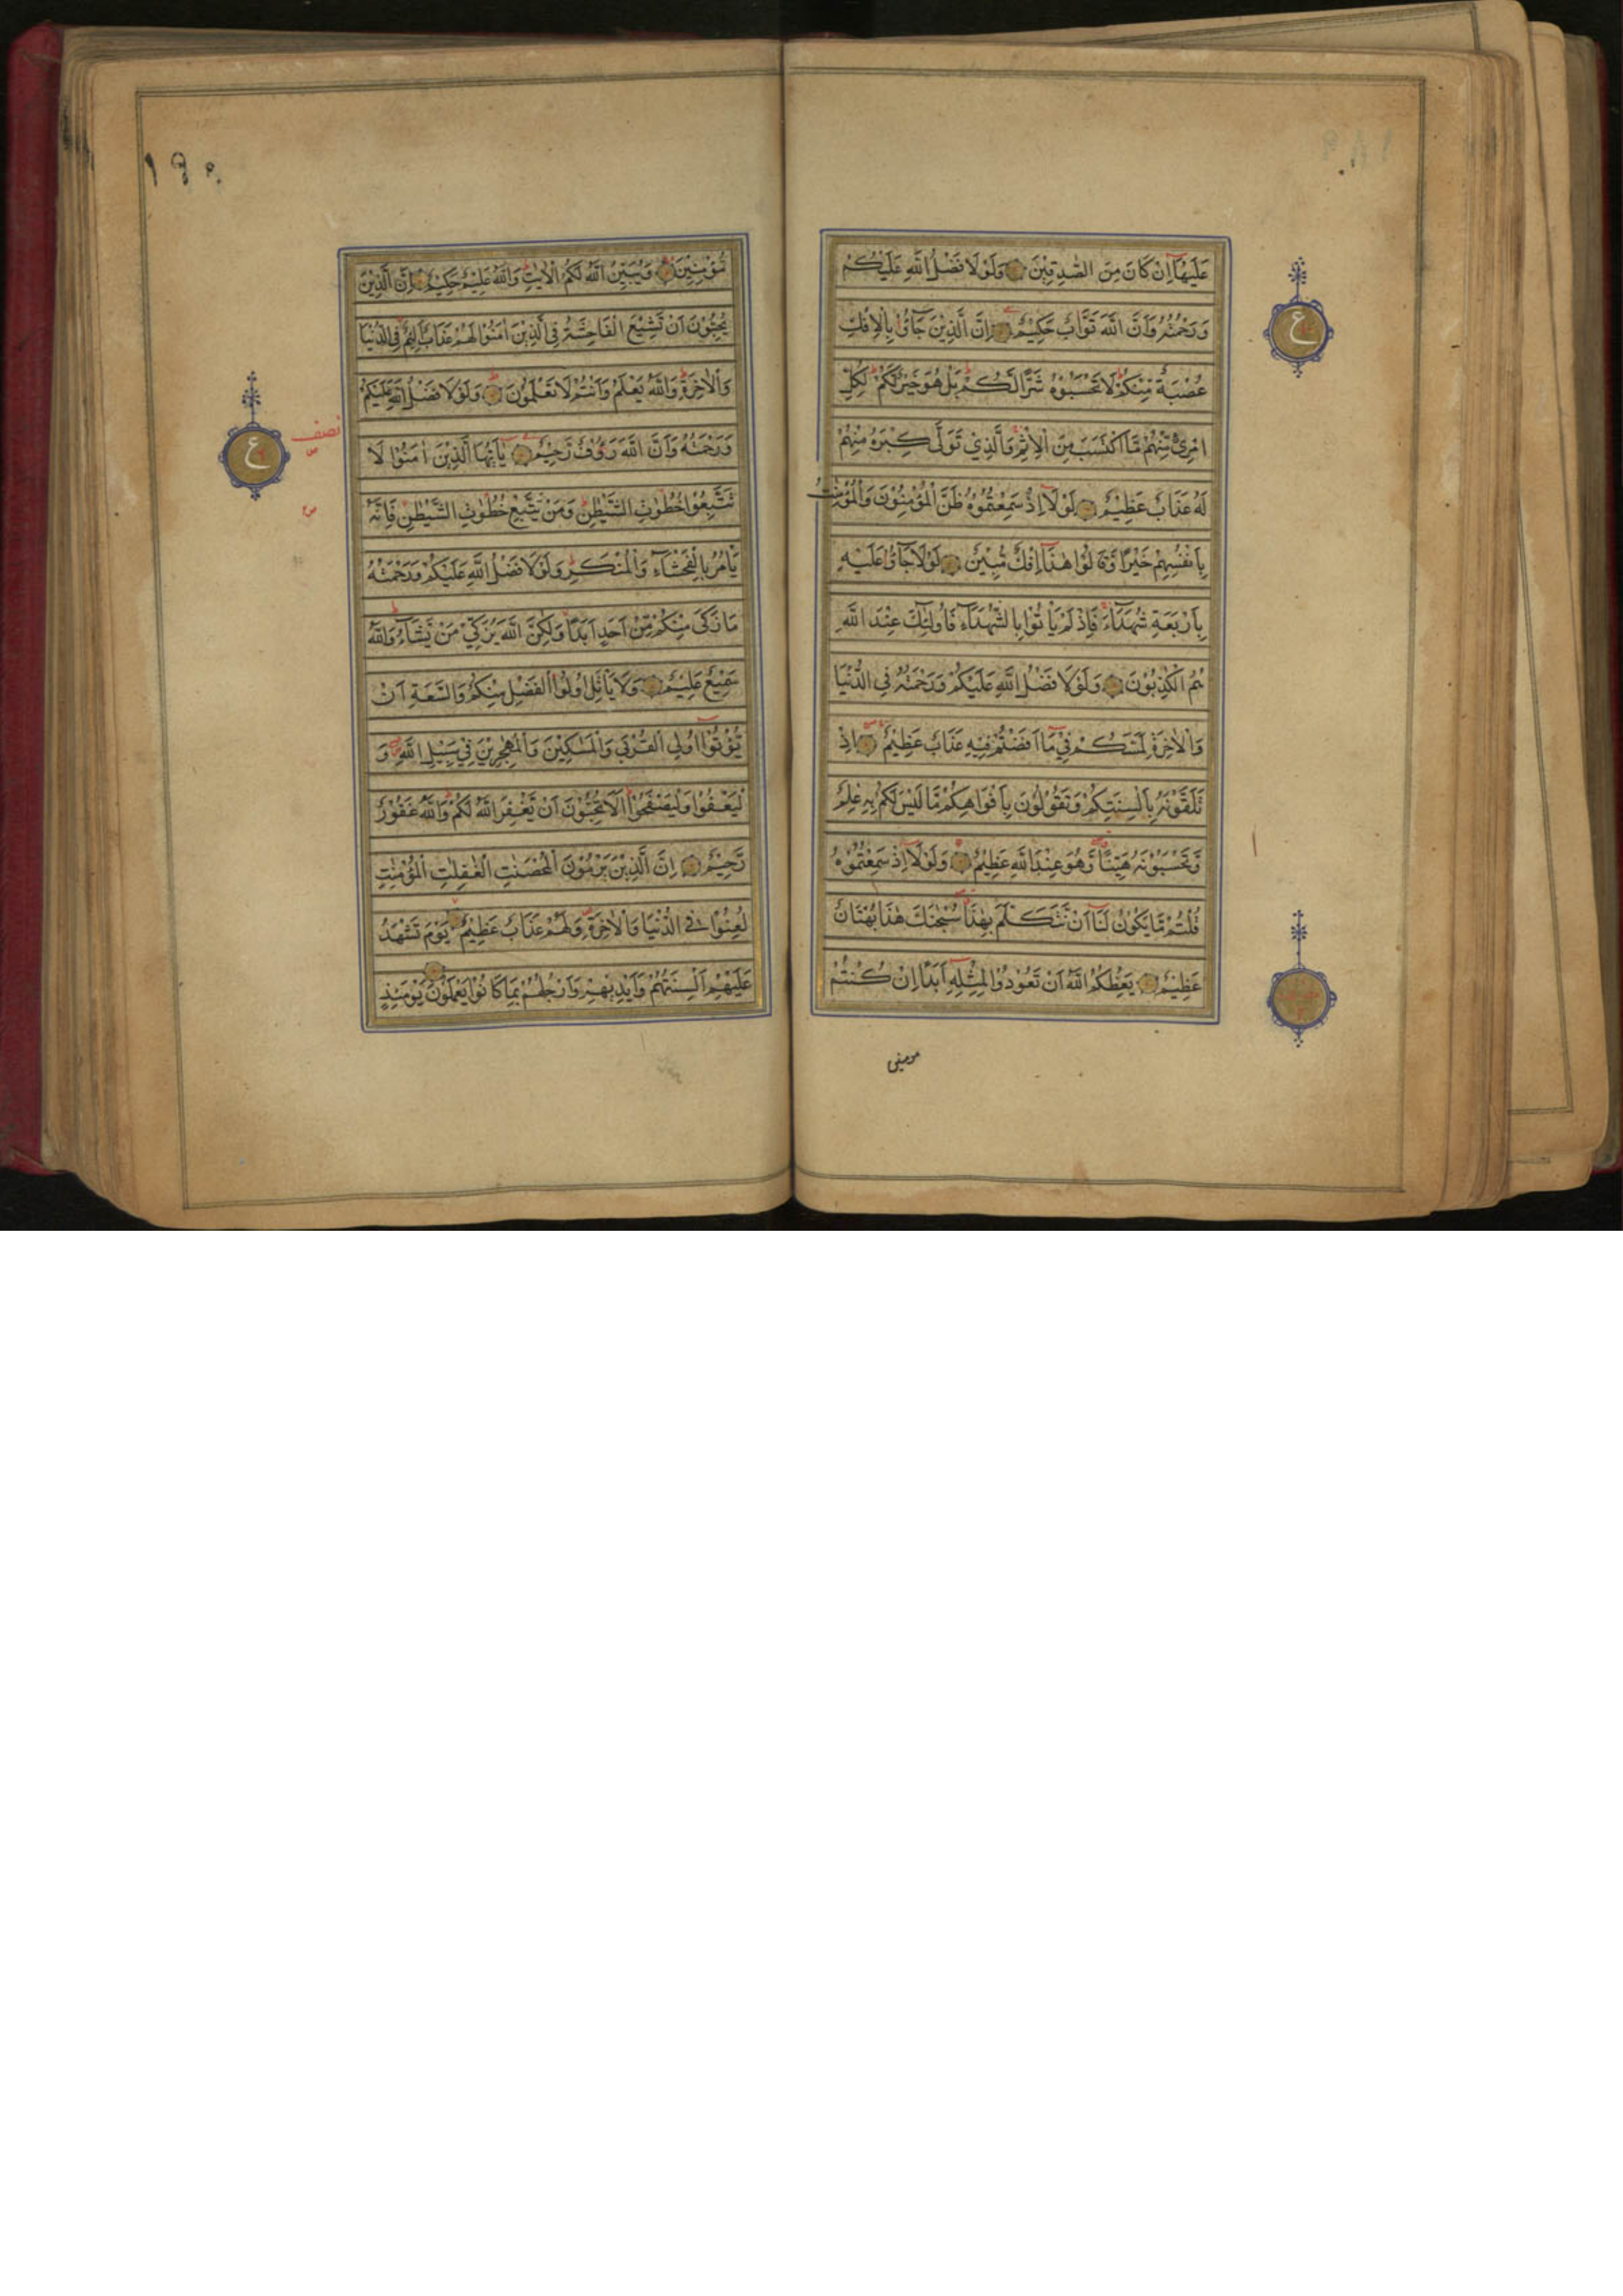 عَلَيْهَآ اِنْ كَانَ مِنَ الصّٰدِقِيْنَ وَلَوْلَا فَضْلُ اللّٰهِ عَلَيْكُمْ
وَرَحْمَتُهٗ وَاَنَّ اللّٰهَ تَوَّابٌ حَكِيْمٌ اِنَّ الَّذِيْنَ جَآءُوْ بِالْاِفْكِ
عُصْبَةٌ مِّنْكُمْ لَا تَحْسَبُوْهُ شَرًّا لَّكُمْ بَلْ هُوَ خَيْرٌ لَّكُمْ لِكُلِّ
امْرِئٍ مِّنْهُمْ مَّا اكْتَسَبَ مِنَ الْاِثْمِ وَالَّذِيْ تَوَلّٰى كِبْرَهٗ مِنْهُمْ
لَهٗ عَذَابٌ عَظِيْمٌ لَوْلَآ اِذْ سَمِعْتُمُوْهُ ظَنَّ الْمُؤْمِنُوْنَ وَالْمُؤْمِنٰتُ
بِاَنْفُسِهِمْ خَيْرًا وَّقَالُوْا هٰذَآ اِفْكٌ مُّبِيْنٌ لَوْلَا جَآءُوْ عَلَيْهِ
بِاَرْبَعَةِ شُهَدَآءَ فَاِذْ لَمْ يَاْتُوْا بِالشُّهَدَآءِ فَاُولٰٓئِكَ عِنْدَ اللّٰهِ
هُمُ الْكٰذِبُوْنَ وَلَوْلَا فَضْلُ اللّٰهِ عَلَيْكُمْ وَرَحْمَتُهٗ فِي الدُّنْيَا
وَالْاٰخِرَةِ لَمَسَّكُمْ فِيْ مَآ اَفَضْتُمْ فِيْهِ عَذَابٌ عَظِيْمٌ اِذْ
تَلَقَّوْنَهٗ بِاَلْسِنَتِكُمْ وَتَقُوْلُوْنَ بِاَفْوَاهِكُمْ مَّا لَيْسَ لَكُمْ بِهٖ عِلْمٌ
وَّتَحْسَبُوْنَهٗ هَيِّنًا وَّهُوَ عِنْدَ اللّٰهِ عَظِيْمٌ وَلَوْلَآ اِذْ سَمِعْتُمُوْهُ
قُلْتُمْ مَّا يَكُوْنُ لَنَآ اَنْ نَّتَكَلَّمَ بِهٰذَا سُبْحٰنَكَ هٰذَا بُهْتَانٌ
عَظِيْمٌ يَعِظُكُمُ اللّٰهُ اَنْ تَعُوْدُوْا لِمِثْلِهٖٓ اَبَدًا اِنْ كُنْتُمْ
مومنین
ع
١٩٠
مُّؤْمِنِيْنَ وَيُبَيِّنُ اللّٰهُ لَكُمُ الْاٰيٰتِ وَاللّٰهُ عَلِيْمٌ حَكِيْمٌ اِنَّ الَّذِيْنَ
يُحِبُّوْنَ اَنْ تَشِيْعَ الْفَاحِشَةُ فِي الَّذِيْنَ اٰمَنُوْا لَهُمْ عَذَابٌ اَلِيْمٌ فِي الدُّنْيَا
وَالْاٰخِرَةِ وَاللّٰهُ يَعْلَمُ وَاَنْتُمْ لَا تَعْلَمُوْنَ وَلَوْلَا فَضْلُ اللّٰهِ عَلَيْكُمْ
وَرَحْمَتُهٗ وَاَنَّ اللّٰهَ رَءُوْفٌ رَّحِيْمٌ يٰٓاَيُّهَا الَّذِيْنَ اٰمَنُوْا لَا
تَتَّبِعُوْا خُطُوٰتِ الشَّيْطٰنِ وَمَنْ يَّتَّبِعْ خُطُوٰتِ الشَّيْطٰنِ فَاِنَّهٗ
يَاْمُرُ بِالْفَحْشَآءِ وَالْمُنْكَرِ وَلَوْلَا فَضْلُ اللّٰهِ عَلَيْكُمْ وَرَحْمَتُهٗ
مَا زَكٰى مِنْكُمْ مِّنْ اَحَدٍ اَبَدًا وَّلٰكِنَّ اللّٰهَ يُزَكِّيْ مَنْ يَّشَآءُ وَاللّٰهُ
سَمِيْعٌ عَلِيْمٌ وَلَا يَاْتَلِ اُولُوا الْفَضْلِ مِنْكُمْ وَالسَّعَةِ اَنْ
يُّؤْتُوْٓا اُولِي الْقُرْبٰى وَالْمَسٰكِيْنَ وَالْمُهٰجِرِيْنَ فِيْ سَبِيْلِ اللّٰهِ وَ
لْيَعْفُوْا وَلْيَصْفَحُوْا اَلَا تُحِبُّوْنَ اَنْ يَّغْفِرَ اللّٰهُ لَكُمْ وَاللّٰهُ غَفُوْرٌ
رَّحِيْمٌ اِنَّ الَّذِيْنَ يَرْمُوْنَ الْمُحْصَنٰتِ الْغٰفِلٰتِ الْمُؤْمِنٰتِ
لُعِنُوْا فِي الدُّنْيَا وَالْاٰخِرَةِ وَلَهُمْ عَذَابٌ عَظِيْمٌ يَّوْمَ تَشْهَدُ
عَلَيْهِمْ اَلْسِنَتُهُمْ وَاَيْدِيْهِمْ وَاَرْجُلُهُمْ بِمَا كَانُوْا يَعْمَلُوْنَ يَوْمَئِذٍ
نصف
ع